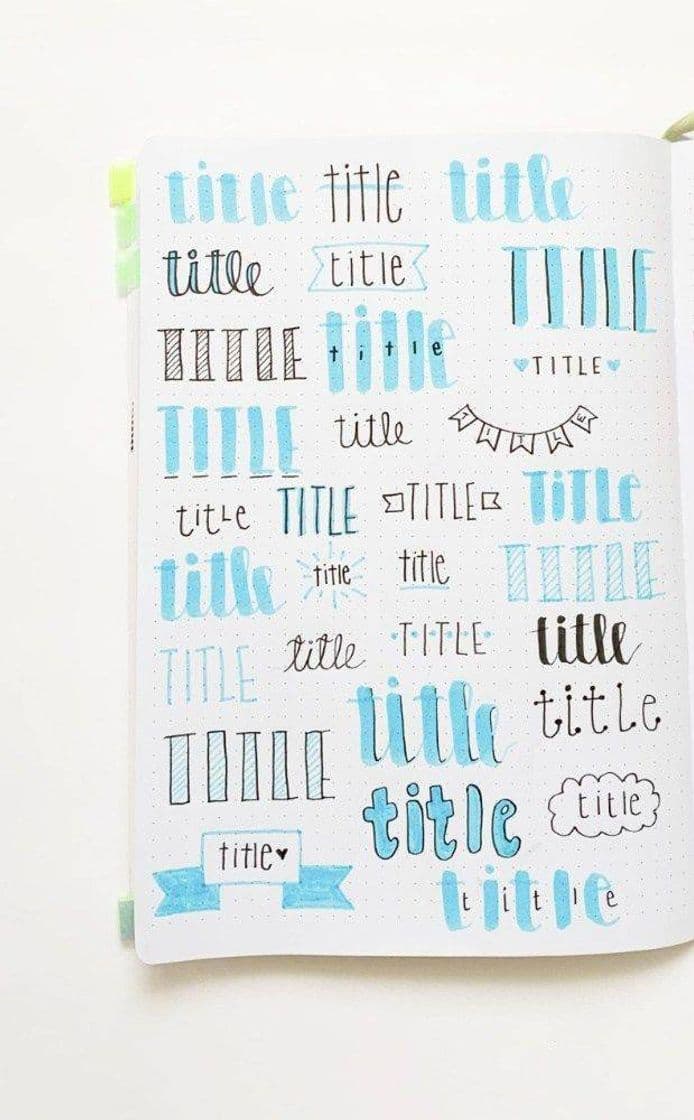 title title title
title title TITLE
TITLE title title TITLE
TITLE title
title TITLE TITLE TITLE
title title title TITLE
TITLE title TITLE title
title title
TITLE title title
title♥
title title